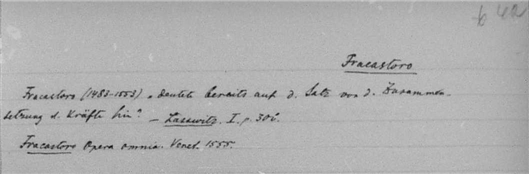 Fracastoro
Fracastoro (1483-1553) „deutet bereits auf d. Satz von d. Zusammen-
setzung d. Kräfte hin“ – Lasswitz. I. p. 306.
Fracastoro Opera omnia. Venet. 1555.